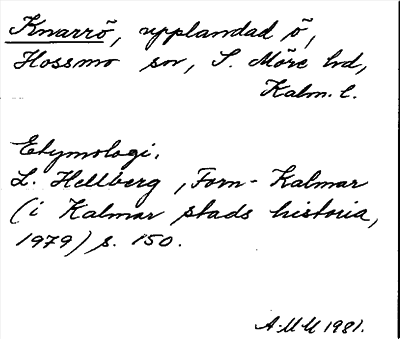 Knarrö, upplandad ö,
Hossmo sn, S. Möre hd,
Kalm. l.
Etymologi.
L. Hellberg, Forn-Kalmar
(i Kalmar stads historia,
1979) s. 150.
AMU 1981.